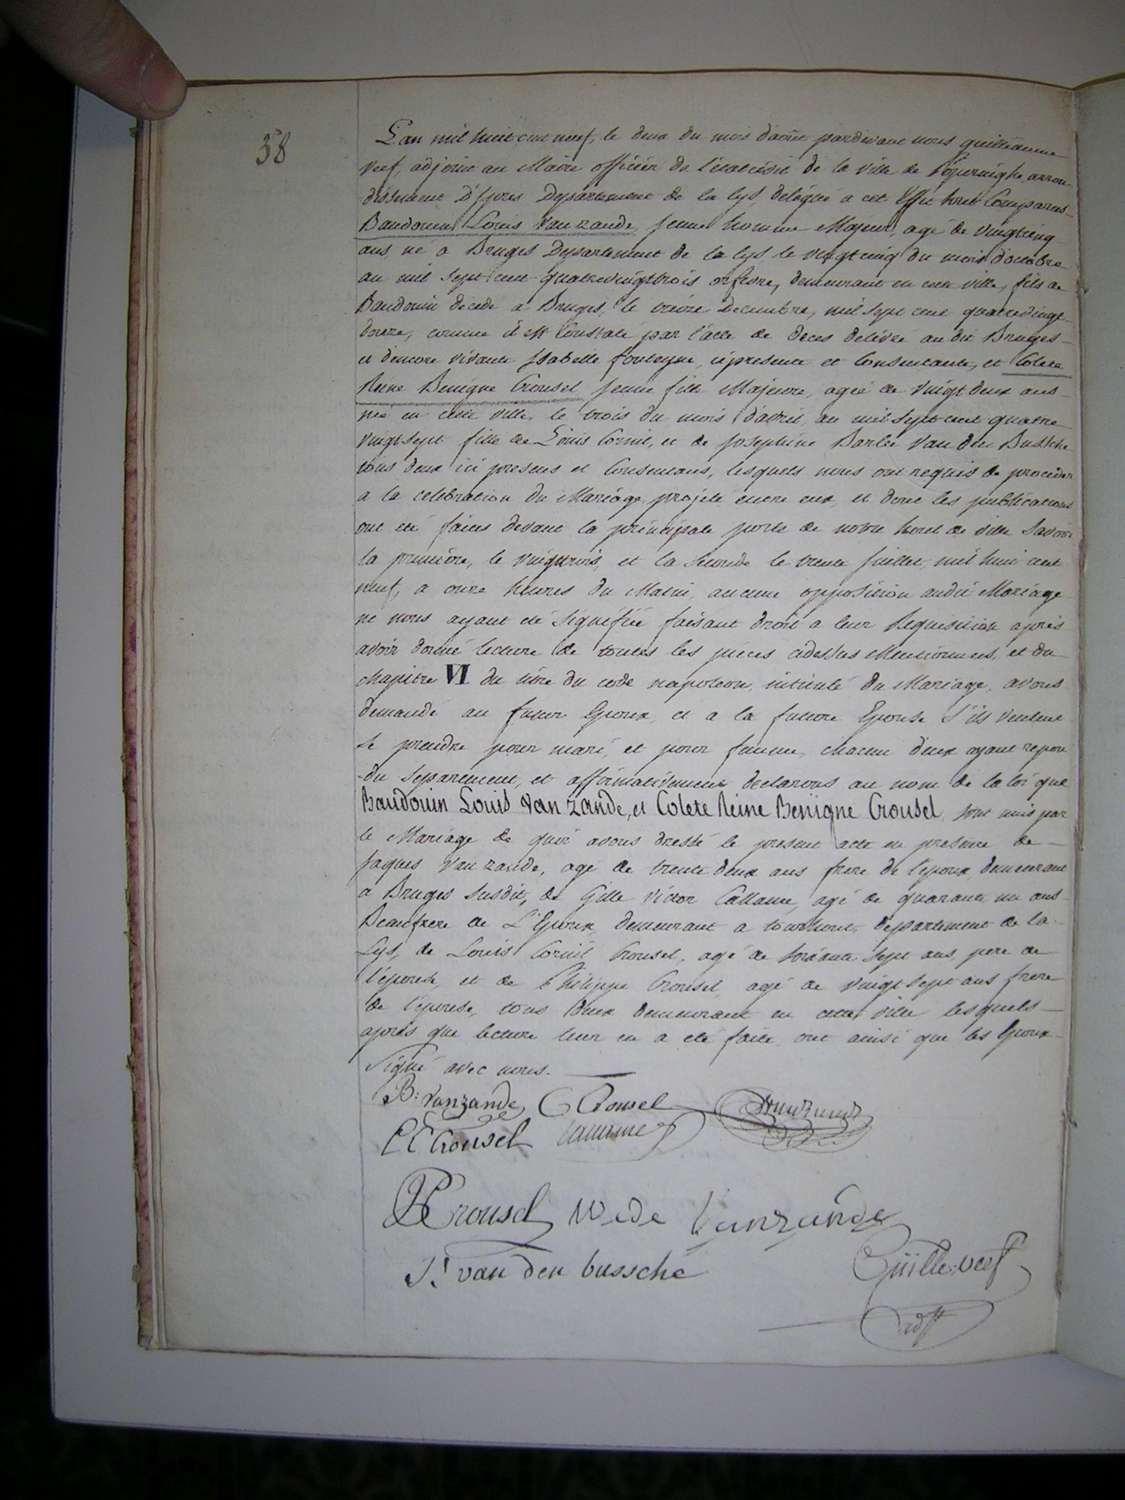 38
L'an mil huit cent neuf, le deux du mois d'août pardevant nous guillaume
Veef, adjoint au Maire officier de l'état civil de la ville de Poperinghe arron-
dissement D'Ypres Departement de la Lys delégué a cet Effet sont Comparus
Baudouin Louis Van zande, jeune homme Majeur, agé de vingt cinq
ans, né a Bruges Departement de la Lys le vingt cinq du mois d'octobre
an mil sept cent quatrevingt trois orfevre, demeurant en cette ville, fils de
Baudouin decede a Bruges, le treize Decembre, mil sept cent quatrevingt
treize, comme il est Constaté par l'acte de déces delivré au dit Bruges
et d'encore vivante Isabelle fonteyne, ici presente et Consentante, et Colete
Reine Benigne Crousel jeune fille Majeure, agée de Vingt deux ans
née en cette ville, le trois du mois d'avril, an mil sept cent quatre
vingt sept fille de Louis Cornil, et de Josephine Barbe Van den Bussche
tous deux ici presens et Consentans, lesquels nous ont requis de proceder
a la celebration du Mariage projeté entre eux, et dont les publications
ont été faites devant la principale porte de notre hotel de ville Savoir
la premiere, le vingt trois, et la Seconde le trente Juillet, mil huit cent
neuf, a onze heures du Matin, aucune opposition audit Mariage
ne nous ayant été Signifiée faisant droit a leur Requisition, après
avoir donné lecture de toutes les pieces cidessus Mentionnées, et du
chapitre VI du titre du code napoleon, intitulé du Mariage, avons
demandé au futur Epoux, et a la future Epouse S'ils veulent
se prendre pour mari, et pour femme, chacun d'eux ayant repon
du Separement, et affirmativement declarons au nom de la loi que
Baudouin Louis Van Zande, et Colete Reine Benigne Crousel, sont unis par
le Mariage de quoi avons dressé le present acte en presence de
Jaques Van zande, agé de trente deux ans frere de l'epoux demeurant
a Bruges Susdit, de Gille Victor Callame, agé de quarante un ans
Beaufrere de L'Epoux, demeurant a tourhout, departement de la
Lys, de Louis Cornil Crousel, agé de Soixante sept ans pere de
l'épouse, et de Philippe Crousel, agé de vingt sept ans frere
de l'épouse, tous deux demeurant en cette ville lesquels
après que lecture leur en a eté faite ont ainsi que les Epoux
Signé avec nous.
B: Vanzande C Crousel Vanzande
L C Crousel Callame
P Crousel Wede Vanzande
J: van den bussche Guille: veef
adjt